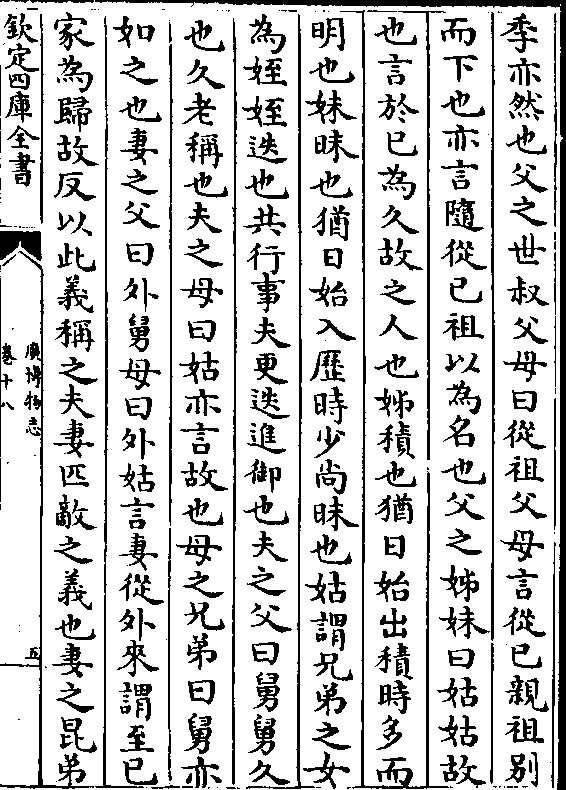 季亦然也父之世叔父母曰從祖父母言從已親祖别
而下也亦言隨從已祖以為名也父之姊妹曰姑姑故
也言於已為久故之人也姊積也猶日始出積時多而
明也妹昧也猶日始入歷時少尚昧也姑謂兄弟之女
為姪姪迭也共行事夫更迭進御也夫之父曰舅舅久
也久老稱也夫之母曰姑亦言故也母之兄弟曰舅亦
如之也妻之父曰外舅母曰外姑言妻從外來謂至已
家為歸故反以此義稱之夫妻匹敵之義也妻之昆弟
欽定四庫全書
廣博物志
卷十八
五